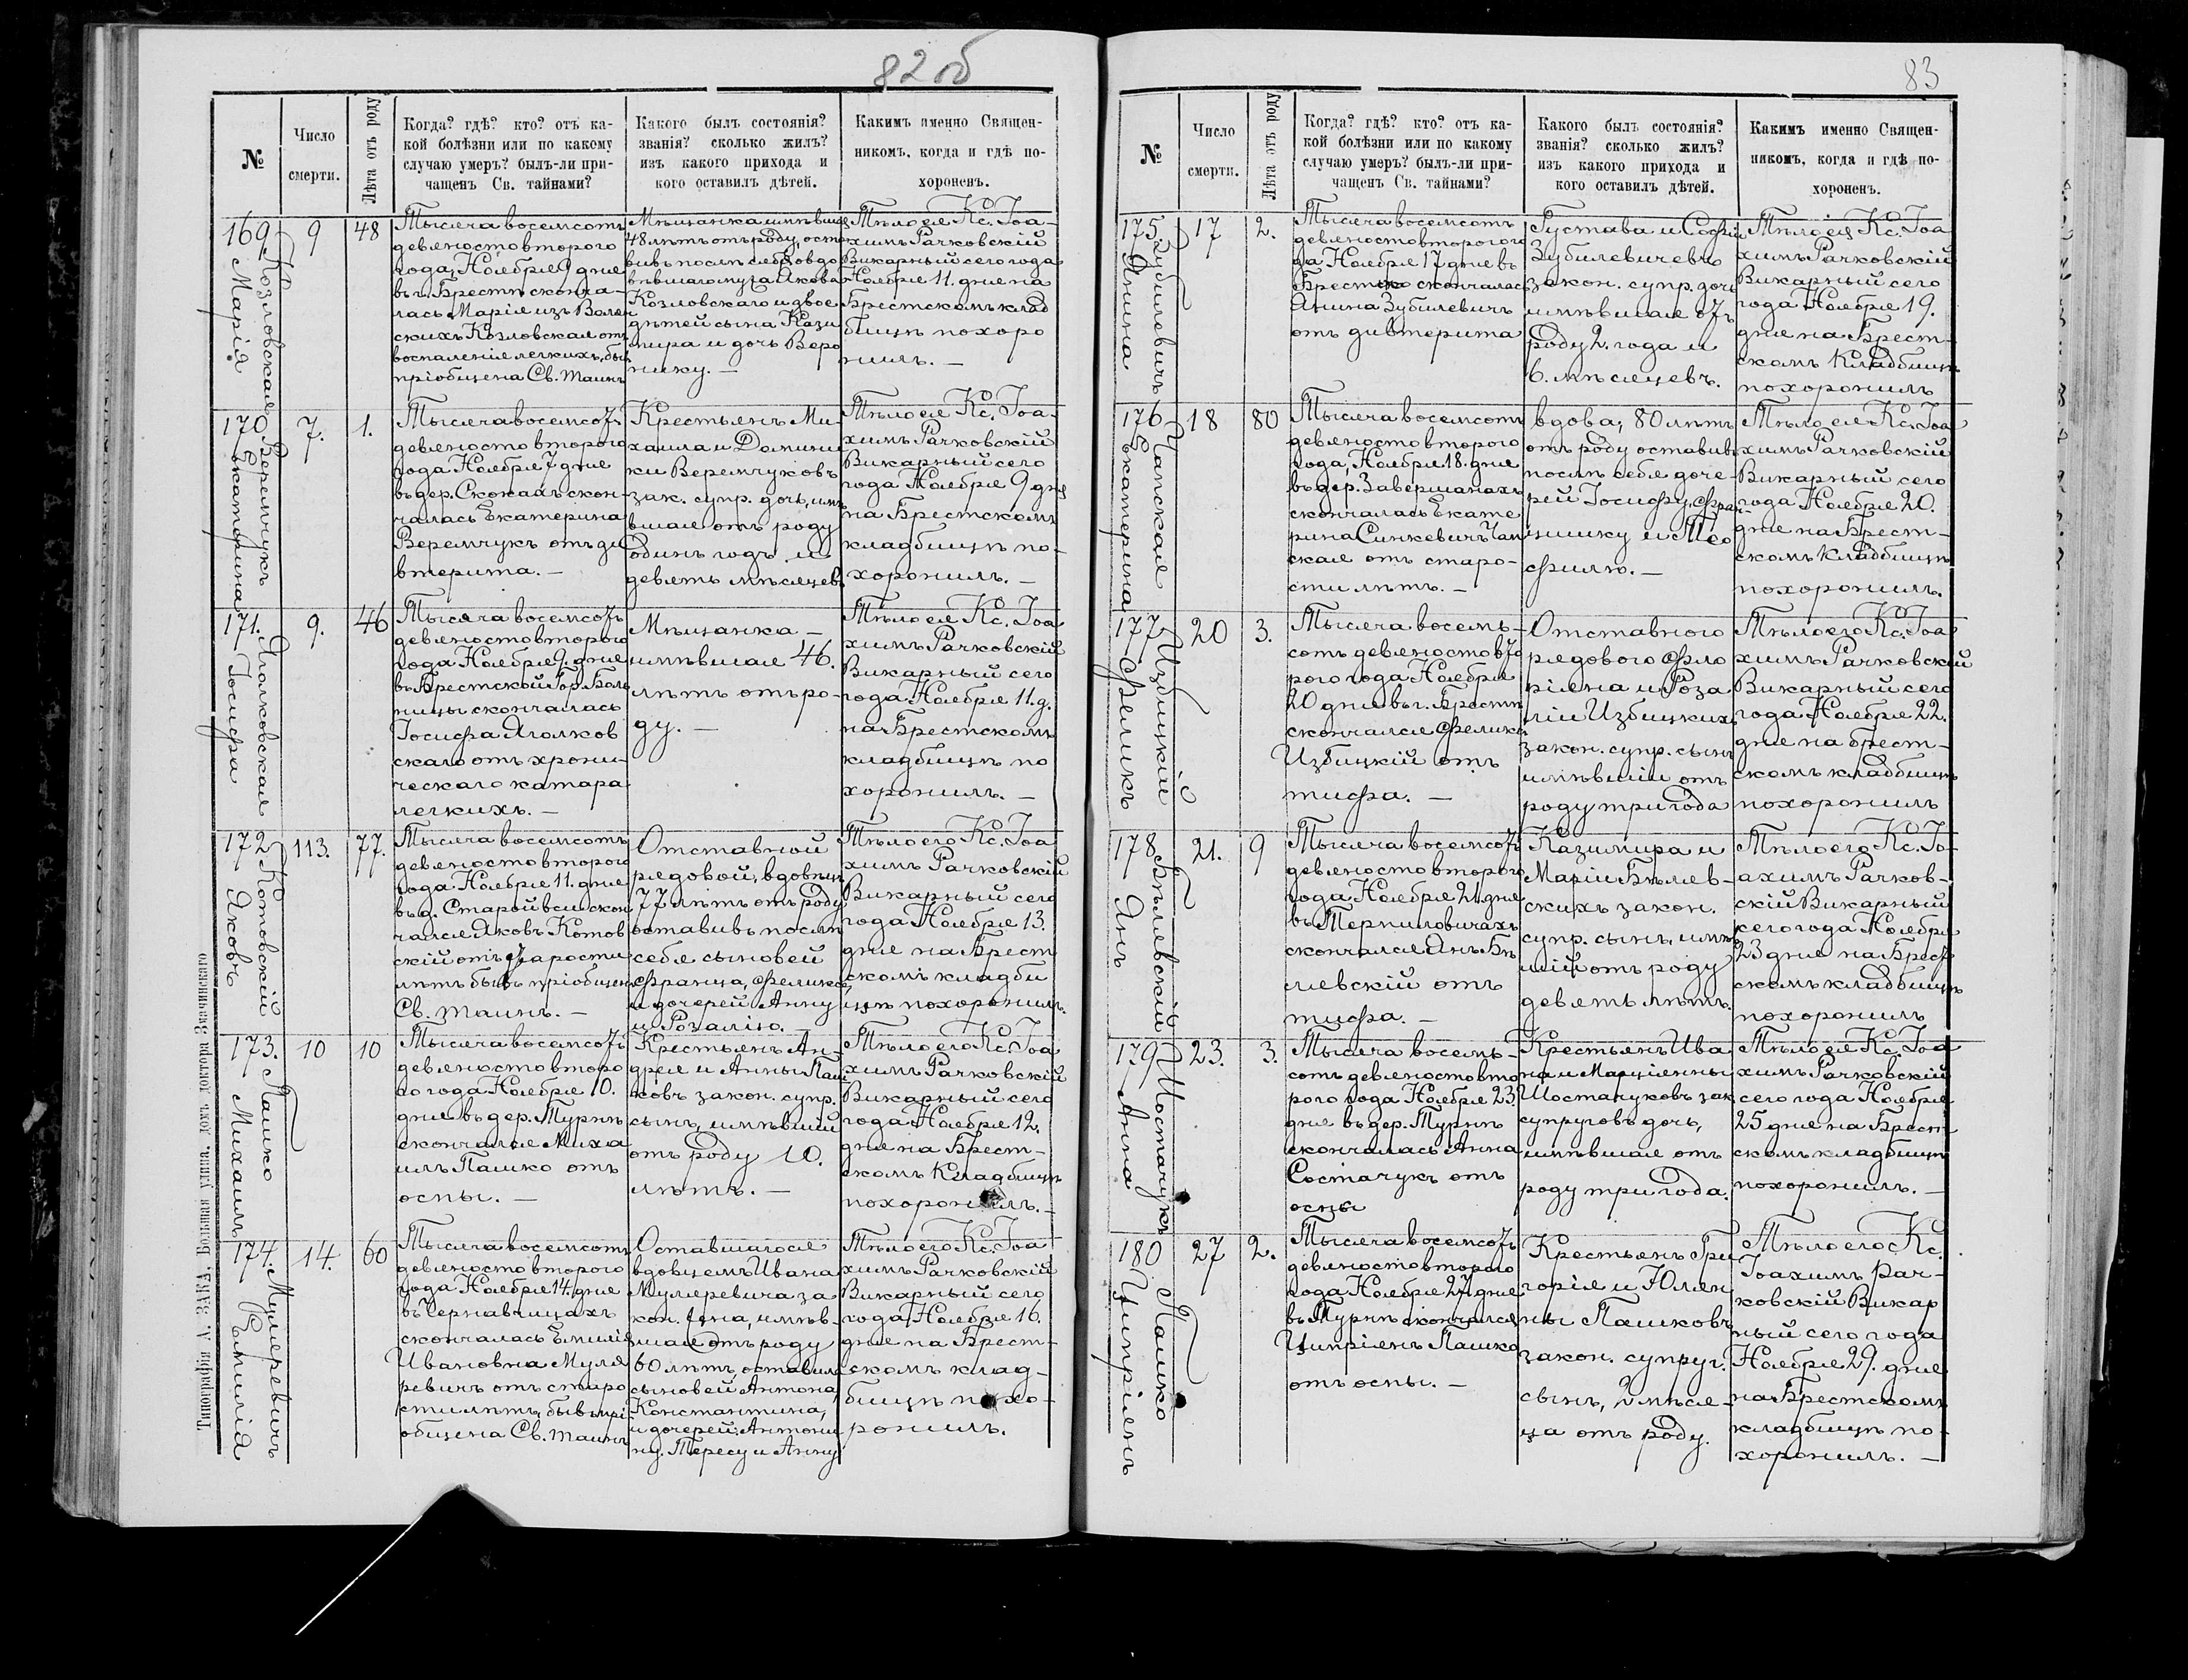 82 об
№
Число
смерти.
Лѣта отъ роду
Когда? гдѣ? кто? отъ ка-
кой болѣзни или по какому
случаю умеръ? былъ-ли при-
чащенъ Св. тайнами?
Какого былъ состоянія?
званія? сколько жилъ?
изъ какого прихода и
кого оставилъ дѣтей.
Какимъ именно Священ-
никомъ, когда и гдѣ по-
хороненъ.
169
Козловская
Марія
9
48
Тысяча восемсотъ
девяносто второго
года, Ноября 9 дня
въ г. Брестѣ сконча-
лась Марія изъ Волян
скихъ Козловская отъ
воспаленія легкихъ, бы
пріобщена Св. таинъ
Мѣщанка имѣвшая
48 лѣтъ отъ роду, оста
вивъ послѣ себя овдо
вѣвшаго мужа Якова
Козловскаго и двое
дѣтей сына Кази
мира и дочь Веро
нику. —
Тѣло ея Кс. Іоа-
химъ Рачковскій
Викарный сего года
Ноября 11. дня на
Брестскомъ клад
бищѣ похоро
нилъ. —
170
Веремчукъ
Екатерина
7.
1.
Тысяча восемсотъ
девяносто второго
года Ноября 7 дня
въ дер. Скокахъ скон-
чалась Екатерина
Веремчукъ отъ ди
втерита. —
Крестьянъ Ми-
хаила и Домини
ки Веремчуковъ
зак. супр. дочь, имѣ
вшая отъ роду
одинъ годъ и
девять мѣсяцевъ
Тѣло ея Кс. Іоа-
химъ Рачковскій
Викарный сего
года Ноября 9 дня
на Брестскомъ
кладбищѣ по-
хоронилъ. —
171.
Яголковская
Іосифа
9.
46
Тысяча восемсотъ
девяносто второго
года Ноября 9. дня
въ Брестской Гор. Боль
ницы скончалась
Іосифа Яголков
скаго отъ хрони-
ческаго катара
легкихъ. —
Мѣщанка —
имѣвшая 46.
лѣтъ отъ ро-
ду. —
Тѣло ея Кс. Іоа
химъ Рачковскій
Викарный сего
года Ноября 11. д.
на Брестскомъ
кладбищѣ по
хоронилъ. —
172
Котовскій
Яковъ
113.
77.
Тысяча восемсотъ
девяносто второго
года Ноября 11. дня
въ д. Старой вси скон
чался Яковъ Котов
скій отъ старости
лѣтъ бывъ пріобщенъ
Св. таинъ. —
Отставной
рядовой, вдовецъ
77 лѣтъ отъ роду
оставивъ послѣ
себя сыновей
Франца, Феликса,
и дочерей Анну
и Розалію. —
Тѣло его Кс. Іоа
химъ Рачковскій
Викарный сего
года Ноября 13.
дня на Брест
скомъ кладби
щѣ похоронилъ.
173.
Пашко
Михаилъ
10
10
Тысяча восемсотъ
девяносто второ
го года Ноября 10.
дня въ дер. Турнѣ
скончался Миха
илъ Пашко отъ
оспы. —
Крестьянъ Ан-
дрея и Анны Паш
ковъ закон. супр.
сынъ, имѣвшій
отъ роду 10.
лѣтъ. —
Тѣло его Кс. Іоа
химъ Рачковскій
Викарный сего
года Ноября 12.
дня на Брест-
скомъ Кладбищѣ
похоронилъ. —
174.
Муляревичъ
Емилія
14.
60
Тысяча восемсотъ
девяносто второго
года Ноября 14. дня
въ Чернавчицахъ
скончалась Емилія
Ивановна Муля
ревичъ отъ старо
сти лѣтъ, бывъ прі-
общена Св. таинъ
Оставшагося
вдовцемъ Ивана
Муляревича за
кон. жена, имѣв-
шая отъ роду
60 лѣтъ, оставила
сыновей Антона,
Константина,
и дочерей: Антони
ну, Тересу и Анну
Тѣло его Кс. Іоа
химъ Рачковскій
Викарный сего
года Ноября 16.
дня на Брест-
скомъ клад-
бищѣ похо-
ронилъ.
Типографія А. ЗАКА, Большая улица, домъ доктора Значинскаго
83
№
Число
смерти.
Лѣта отъ роду
Когда? гдѣ? кто? отъ ка-
кой болѣзни или по какому
случаю умеръ? былъ-ли при-
чащенъ Св. тайнами?
Какого былъ состоянія?
званія? сколько жилъ?
изъ какого прихода и
кого оставилъ дѣтей.
Какимъ именно Священ-
никомъ, когда и гдѣ по-
хороненъ.
175.
Зубилевичъ
Янина
17
2.
Тысяча восемсотъ
девяносто второго го
да Ноября 17 дня въ
Брестѣ скончалась
Янина Зубилевичъ
отъ дивтерита
Густава и Софіи
Зубилевичевъ
закон. супр. дочь
имѣвшая отъ
роду 2. года и
6. мѣсяцевъ.
Тѣло ея Кс. Іоа
химъ Рачковскій
Викарный сего
года Ноября 19.
дня на Брест-
скомъ Кладбищѣ
похоронилъ
176
Чапская
Екатерина
18
80
Тысяча восемсотъ
девяносто второго
года, Ноября 18. дня
въ дер. Завершанахъ
скончалась Екате
рина Синкевичъ Чап
ская отъ старо-
сти лѣтъ. —
вдова, 80 лѣтъ
отъ роду оставивъ
послѣ себя доче-
рей Іосифу, Фран-
цишку и Тео
филю. —
Тѣло ея Кс. Іоа
химъ Рачковскій
Викарный сего
года Ноября 20.
дня на Брест-
скомъ Кладбищѣ
похоронилъ.
177
Избицкій
Феликъ
20
3.
Тысяча восемь-
сотъ девяносто вто
рого года Ноября
20 дня въ г. Брестѣ
скончался Феликсъ
Избицкій отъ
тифа. —
Отставного
рядового Фло
ріяна и Роза
ліи Избицкихъ
закон. супр. сынъ
имѣвшій отъ
роду три года
Тѣло его Кс. Іоа
химъ Рачковскій
Викарный сего
года Ноября 22.
дня на брест-
скомъ кладбищѣ
похоронилъ
178
Бѣлевскій
Янъ
21.
9
Тысяча восемсотъ
девяносто второго
года Ноября 21. дня
въ Терпиловичахъ
скончался Янъ Бѣ
левскій отъ
тифа. —
Казимира и
Маріи Бѣлев-
скихъ закон.
супр. сынъ, имѣв
шій отъ роду
девять лѣтъ.
Тѣло его Кс. Іо-
ахимъ Рачков-
скій Викарный
сего года Ноября
23 дня на Брест
скомъ кладбищѣ
похоронилъ
179
Шостачукъ
Анна
23.
3.
Тысяча восемь-
сотъ девяносто вто
рого года Ноября 23
дня въ дер. Турнѣ
скончалась Анна
Состачукъ отъ
оспы
Крестьянъ Ива
на и Марціянны
Шостачуковъ зак.
супруговъ дочь,
имѣвшая отъ
роду три года.
Тѣло ея Кс. Іоа
химъ Рачковскій
сего года Ноября
25 дня на Брест
скомъ кладбищѣ
похоронилъ. —
180
Пашко
Ципріянъ
27
2.
Тысяча восемсотъ
девяносто второго
года Ноября 27 дня
въ Турнѣ скончался
Ципріянъ Пашко
отъ оспы. —
Крестьянъ Гри
горія и Юліян
ны Пашковъ
закон. супруг.
сынъ, 2 мѣся-
ца отъ роду.
Тѣло его Кс.
Іоахимъ Рач-
ковскій Викар
ный сего года
Ноября 29. дня
на Брестскомъ
кладбищѣ по-
хоронилъ. —